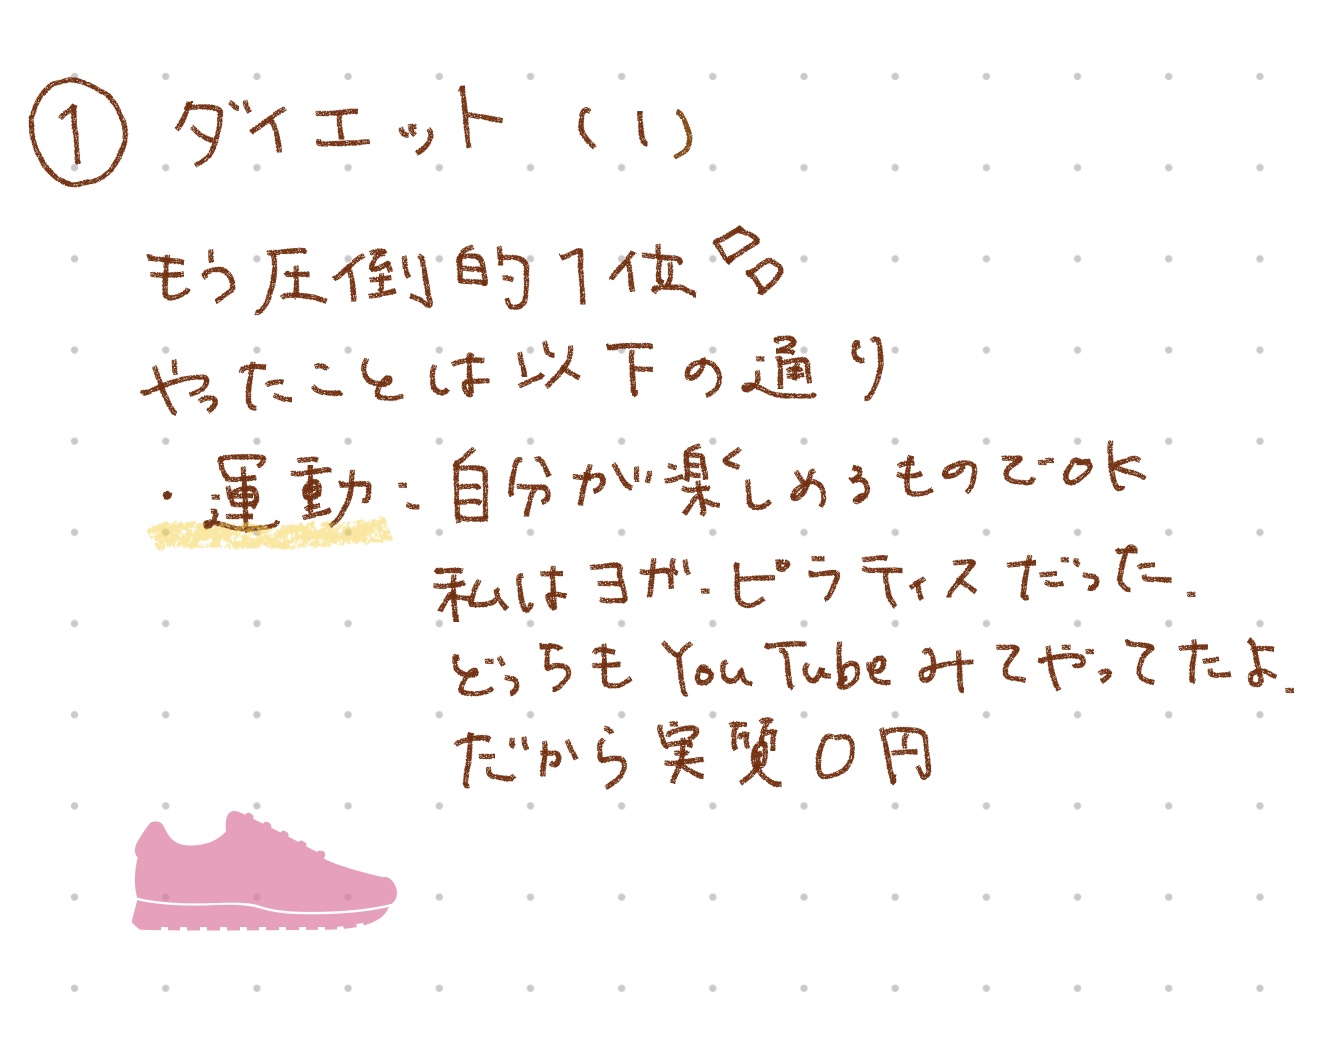 ① ダイエット (1)
もう圧倒的1位
やったことは以下の通り
・運動：自分が楽しめるものでOK
私はヨガ.ピラティスだった.
どっちもYouTubeみてやってたよ.
だから実質0円